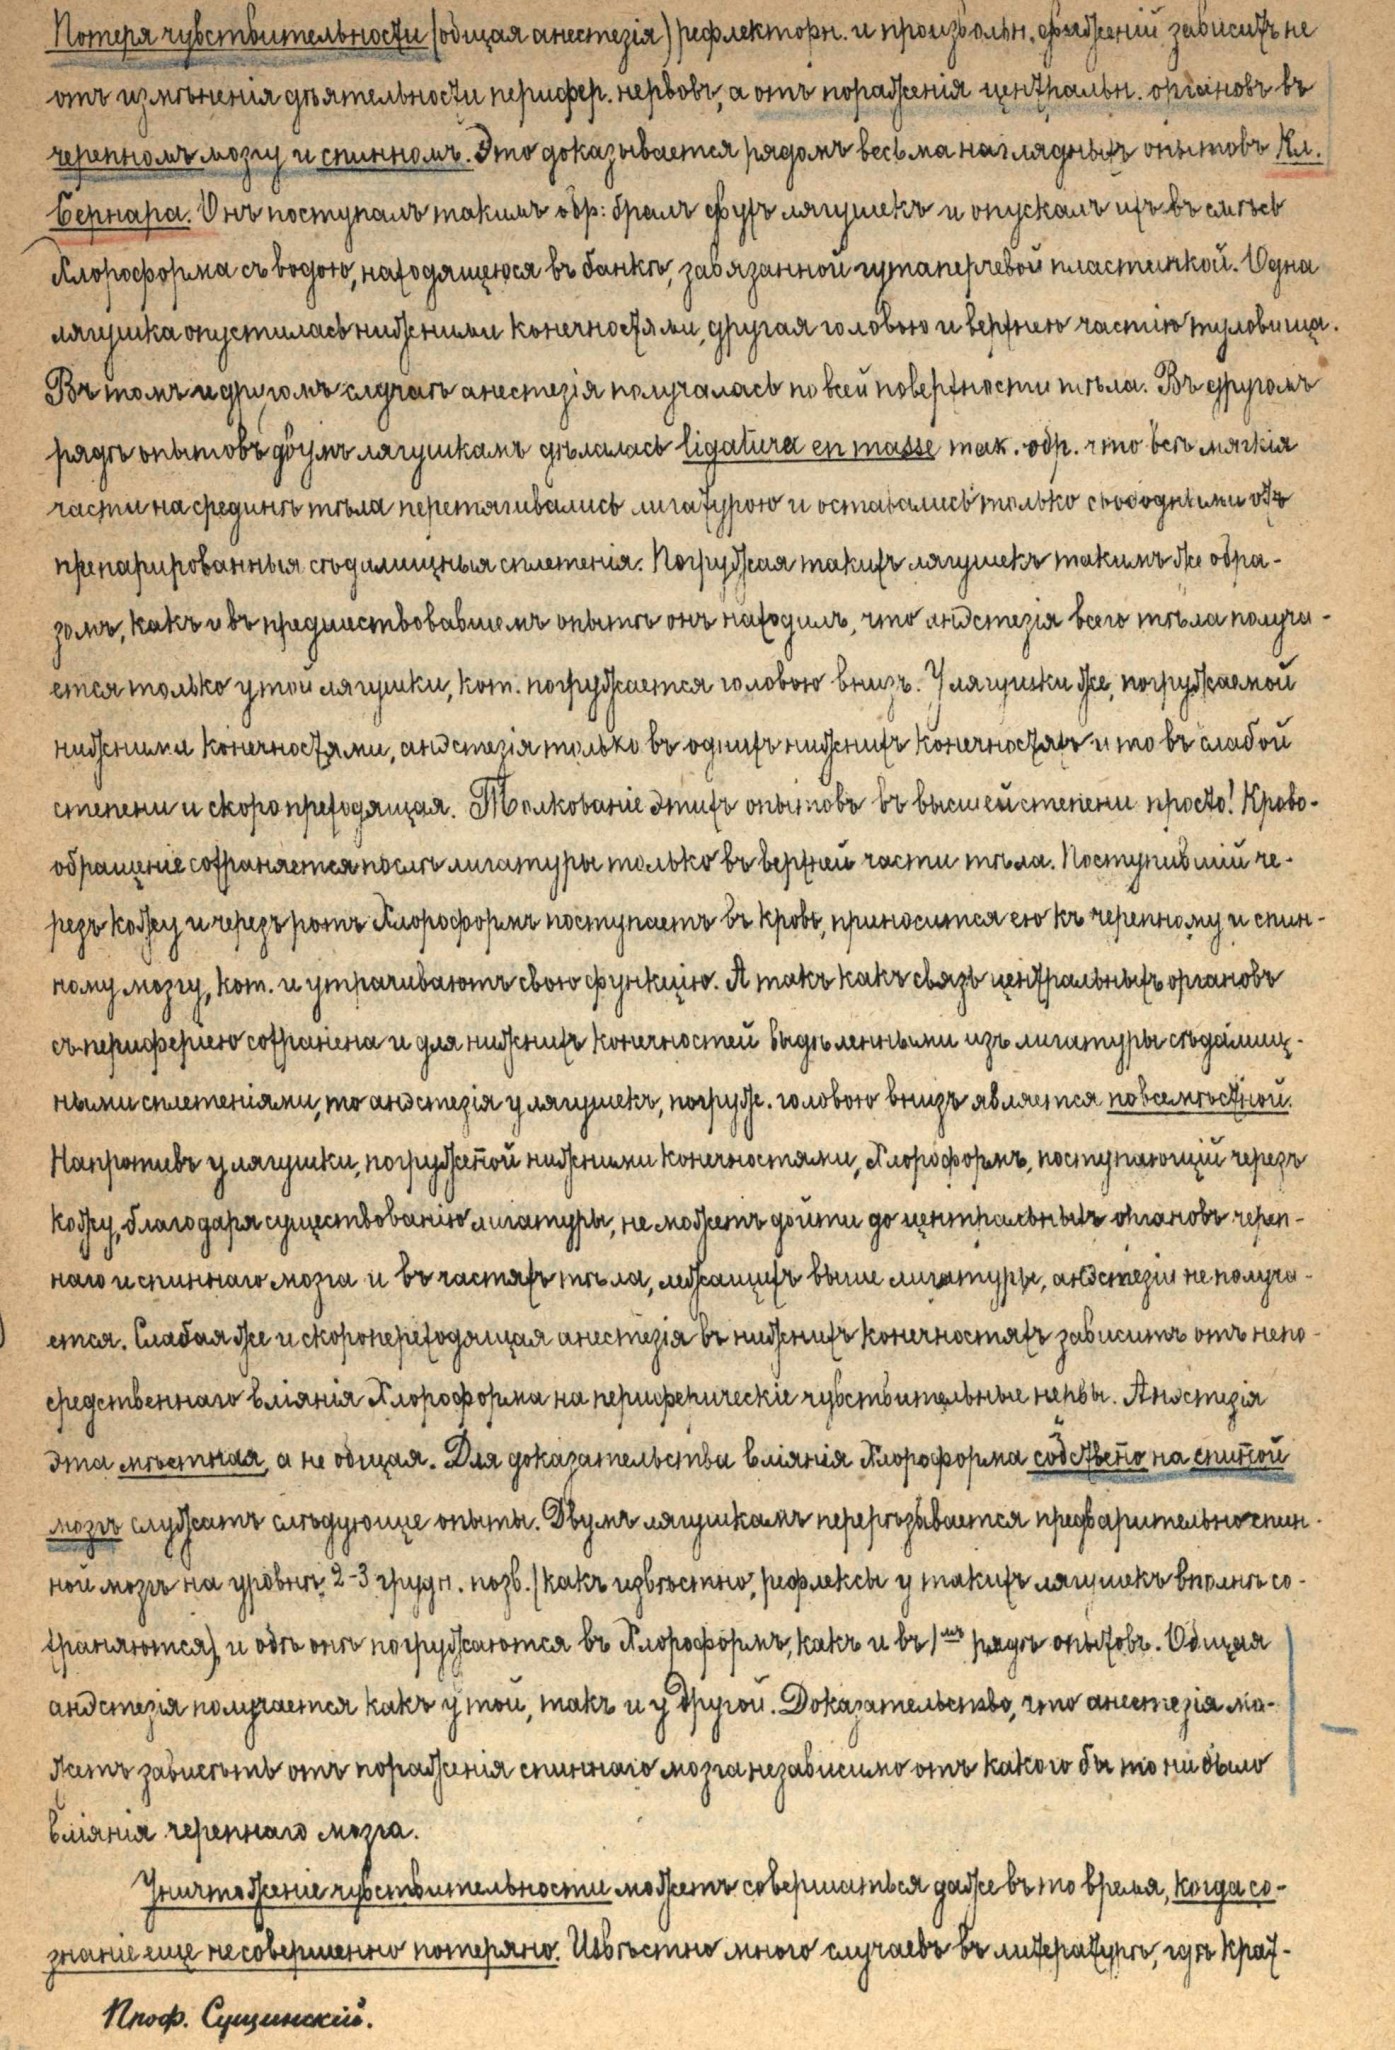 Потеря чувствительности (общая анестезія) рефлекторн. и произвольн. движеній зависитъ не
отъ измѣненія дѣятельности перифер. нервовъ, а отъ пораженія центральн. органовъ въ
черепномъ мозгу и спинномъ. Это доказывается рядомъ весьма наглядныхъ опытовъ Кл.
Бернара. Онъ поступалъ такимъ обр: бралъ двухъ лягушекъ и опускалъ ихъ въ смѣсь
хлороформа съ водою, находящеюся въ банкѣ, завязанной гутаперчевой пластинкой. Одна
лягушка опустилась нижними конечностями, другая головою и верхнею частію туловища.
Въ томъ и другомъ случаѣ анестезія получалась по всей поверхности тѣла. Въ другомъ
рядѣ опытовъ двумъ лягушкамъ дѣлалась ligatura en masse так. обр. что всѣ мягкія
части на срединѣ тѣла перетягивались лигатурою и оставались только свободными от
препарированныя сѣдалищныя сплетенія. Погружая такихъ лягушекъ такимъ же обра-
зомъ, какъ и въ предшествовавшемъ опытѣ онъ находилъ, что анэстезія всего тѣла получа-
ется только у той лягушки, кот. погружается головою внизъ. У лягушки же, погружаемой
нижними конечностями, анэстезія только въ однихъ нижнихъ конечностяхъ и то въ слабой
степени и скоропреходящая. Толкованіе этихъ опытовъ въ высшей степени просто! Крово-
обращеніе сохраняется послѣ лигатуры только въ верхней части тѣла. Поступившій че-
резъ кожу и черезъ ротъ хлороформъ поступаетъ въ кровь, приносится ею къ черепному и спин-
ному мозгу, кот. и утрачиваютъ свою функцію. А такъ какъ связь центральныхъ органовъ
съ периферіею сохранена и для нижнихъ конечностей выдѣленными изъ лигатуры сѣдалищ-
ными сплетеніями, то анэстезія у лягушекъ, погруж. головою внизъ является повсемѣстной.
Напротивъ у лягушки, погружен̄ой нижними конечностями, хлороформъ, поступающій черезъ
кожу, благодаря существованію лигатуры, не можетъ дойти до центральныхъ органовъ череп-
наго и спиннаго мозга и въ частяхъ тѣла, лежащихъ выше лигатуры, анэстезіи не получа-
ется. Слабая же и скоропереходящая анестезія въ нижнихъ конечностяхъ зависитъ отъ непо-
средственнаго вліянія хлороформа на периферическіе чувствительные нервы. Анэстезія
эта мѣстная, а не общая. Для доказательства вліянія хлороформа собствен̄о на спин̄ой
мозгъ служатъ слѣдующіе опыты. Двумъ лягушкамъ перерѣзывается предварительно спин-
ной мозгъ на уровнѣ 2-3 грудн. позв. (какъ извѣстно, рефлексы у такихъ лягушекъ вполнѣ со-
храняются), и обѣ онѣ погружаются въ хлороформъ, какъ и въ 1мъ рядѣ опытовъ. Общая
анэстезія получается какъ у той, такъ и у другой. Доказательство, что анестезія мо-
жетъ зависѣть отъ пораженія спиннаго мозга независимо отъ какого бы то ни было
вліянія черепнаго мозга.
Уничтоженіе чувствительности можетъ совершаться даже въ то время, когда со-
знаніе еще не совершенно потеряно. Извѣстно много случаевъ въ литературѣ, гдѣ крат-
Проф. Сущинскій.